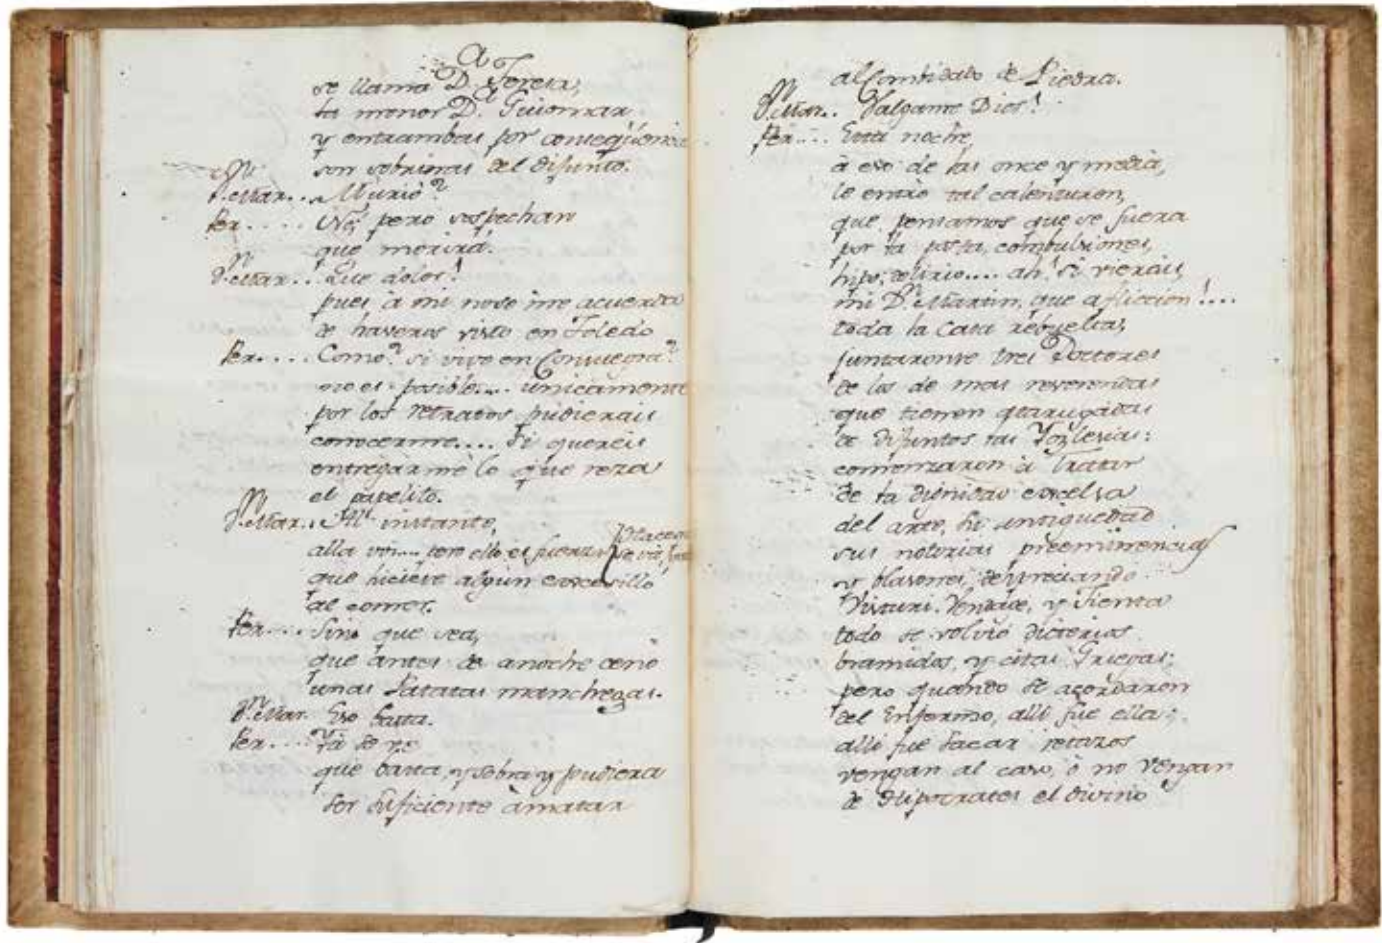 se llama D.ª Teresa,
la menor D.ª Guiomar
y entrambas por conseqüencia
son sobrinas del difunto.
D. Mar... Murió?
Per..... No, pero sospechan
que morirá.
D. Mar.. Que dolor!
pues a mi no se me acuerda
de haveros visto en Toledo
Per..... Como? si vive en Consuegra?
no es posible.... unicamente
por los retratos pudierais
conocerme.... Si quereis
entregarme lo que reza
el papelito.
D. Mar... Al instante,
alla voi.... pero ello es fuerza
que hiciese algun excesillo
al comer.
Per.... Sino que sea,
que antes de anoche cenó
unas Patatas manchegas.
D. Mar. Eso basta.
Per.... Ya se ve
que basta, y sobra, y pudiera
ser suficiente à matar
al Combidado de Piedra.
D. Mar.. Valgame Dios!
Per.... Esta noche
à eso de las once y media,
le entró tal calenturon,
que pensamos que se fuera
por la posta, combulsiones,
hipo, delirio.... ah! si vierais,
mi D.n Martin, que afliccion!....
toda la Casa rebuelta,
juntaronse tres Doctores
de los de mas reverendas
que tienen atarugadas
de difuntos las Yglesias:
comenzaron à tratar
de la dignidad excelsa
del arte, su antiguedad
sus notorias preeminencias
y blasones, despreciando
Visturi, Vendage, y Tienta
todo se volvió dicterios
bramidos, y citas Griegas;
pero quando se acordaron
del Enfermo, alli fue ella;
alli fue sacar retazos
vengan al caso, ò no vengan
de Hipocrates el divino